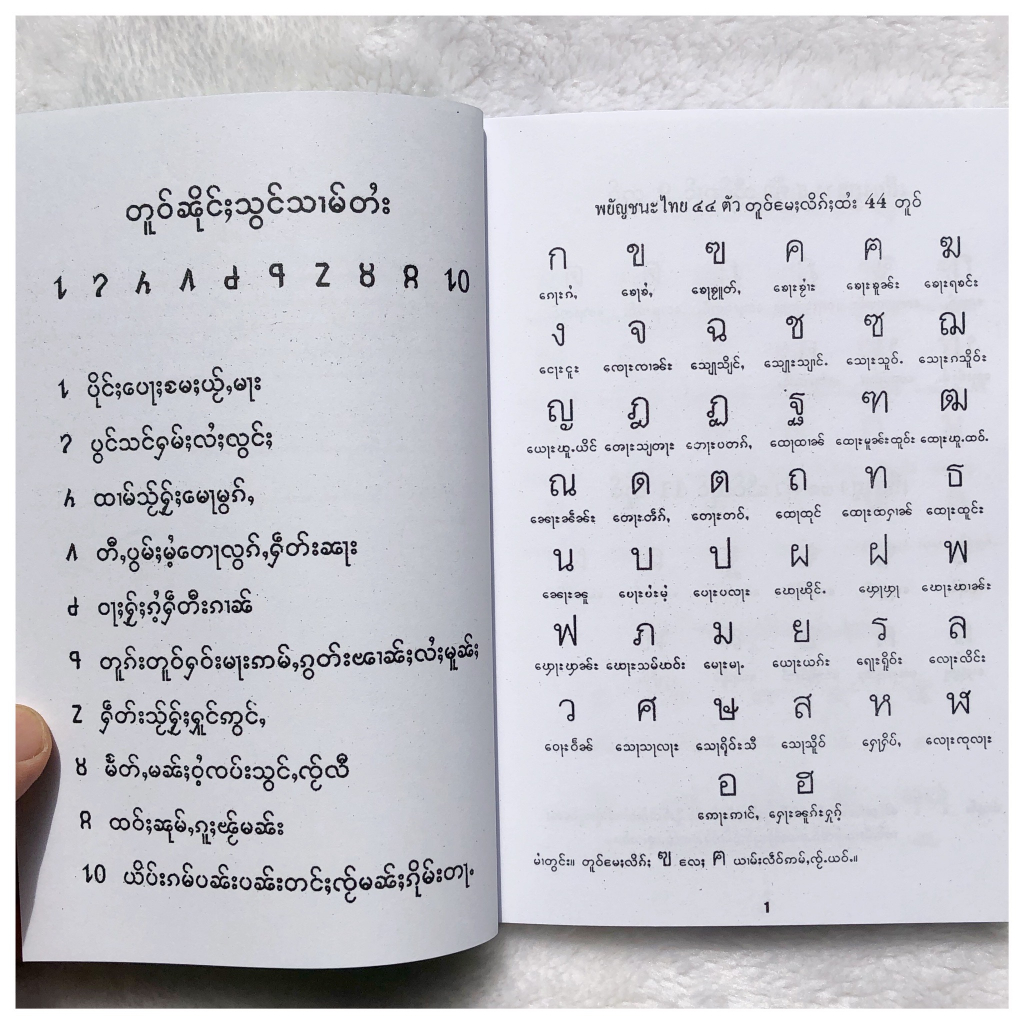 တူဝ်ၼိုင်ႈသွင်သၢမ်တႆး
႑ ႒ ႓ ႔ ႕ ႖ ႗ ႘ ႙ ႑႐
႑ ပိုင်ႈပေႃႈမႄႈယႂ်ႇမႃး
႒ ပွင်သင်ႁမ်ႈလႆႈလွင်ႈ
႓ ထၢမ်သႂ်ႁႂ်ႈမေႃမွၵ်ႇ
႔ တီႇပွမ်ႈမႆႉတေႃလွၵ်ႇႁဵတ်းၼႃး
႕ ဝႃႈႁႂ်ႈၵႆႉႁဵတီးၵၢၼ်
႖ တူၵ်းတူဝ်ႁဝ်းမႃးဢမ်ႇၵွတ်းၽၢၼ်ႈလႆႈမူၼ်ႈ
႗ ႁဵတ်းသႂ်ႁႂ်ႈႁူင်ဢွင်ႇ
႘ မႅတ်ႇမၼ်ႈဝႆႉၸပ်းသွင်ႇၸႂ်လီ
႙ ထဝ်ႈၼုမ်ႇၵူႈၽႂ်မၼ်း
႑႐ ယိပ်းၵမ်ပၼ်းပၼ်းတင်ႈၸႂ်မၼ်ႈၵိုမ်းတႃႉ
พยัญชนะไทย ๔๔ ตัว တူဝ်မႄႈလိၵ်ႈထႆး 44 တူဝ်
ก ข ฃ ค ฅ ฆ
ၵေႃးၵႆႇ ၶေႃၶႆႇ ၶေႃၶူတ်ႇ ၶေႃးၶႂၢႆး ၶေႃးၶူၼ်း ၶေႃးရၶင်း
ง จ ฉ ช ซ ฌ
ငေႃးငူး ၸေႃးၸၢၼ်း သျေႃသျိင်ႇ သျေႃးသျၢင်ႉ သေႃးသူဝ်ႉ သေႃးၵသိူဝ်း
ญ ฎ ฏ ฐ ฑ ฒ
ယေႃးယူႉယိင် တေႃးသျတႃး ပေႃးပတၵ်ႇ ထေႃထၢၼ် ထေႃးမူၼ်းထူဝ်း ထေႃးၽူႉထဝ်ႉ
ณ ด ต ถ ท ธ
ၼေႃးၼဵၼ်း တေႃးတဵၵ်ႇ တေႃးတဝ်ႇ ထေႃထုင် ထေႃးထႁၢၼ် ထေႃးထူင်း
น บ ป ผ ฝ พ
ၼေႃးၼူ ပေႃးပႂ်းမႆႉ ပေႃးပလႃး ၽေႃၽိုင်ႉ ၾေႃၾႃ ၽေႃးၽၢၼ်း
ฟ ภ ม ย ร ล
ၾေႃးၾၼ်း ၽေႃးသမ်ၽဝ်း မေႃးမႃႉ ယေႃးယၵ်း ရေႃးရိူဝ်း လေႃးလိင်း
ว ศ ษ ส ห ฬ
ဝေႃးဝႅၼ် သေႃသႃလႃး သေႃရိုဝ်းသီ သေႃသိူဝ် ႁေႃႁိပ်ႇ လေႃးၸုလႃး
อ ฮ
ဢေႃးဢၢင်ႇ ႁေႃးၼူၵ်းႁုၵ်ႉ
မၢႆတွင်း။ တူဝ်မႄႈလိၵ်ႈ ฃ လႄႈ ฅ ယၢမ်းလဵဝ်ဢမ်ႇၸႂ်ႉယဝ်ႉ။
1